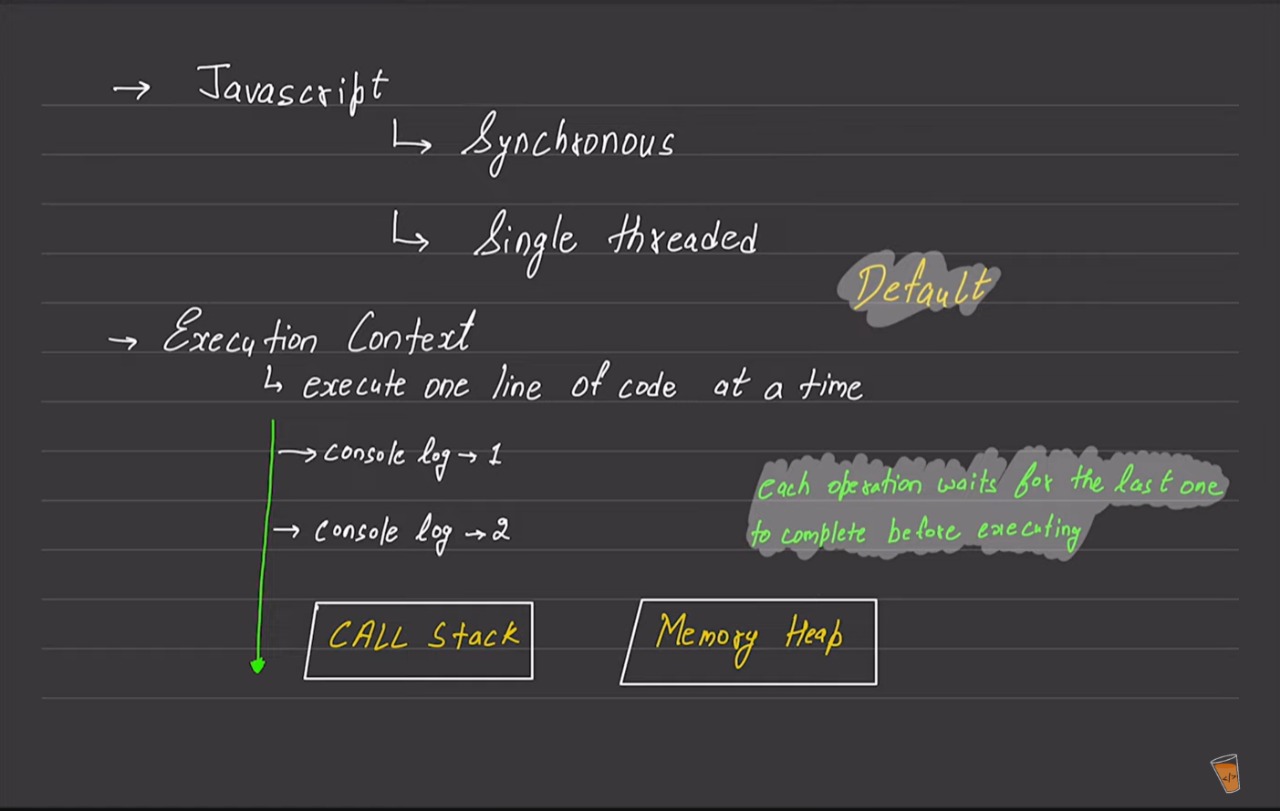 → Javascript
↳ Synchronous
↳ Single threaded
Default
→ Execution Context
↳ execute one line of code at a time
→ console log → 1
each operation waits for the last one
to complete before executing
→ console log → 2
CALL Stack
Memory Heap
</>